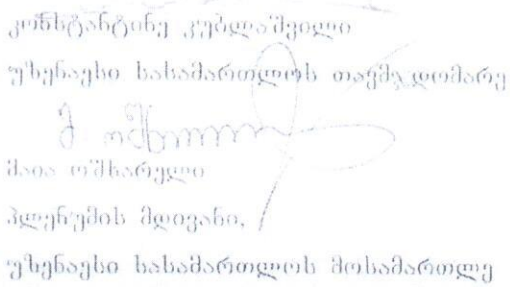 კონსტანტინე კუბლაშვილი
უზენაესი სასამართლოს თავმჯდომარე
მ. ოშხარელი
მაია ოშხარელი
პლენუმის მდივანი,
უზენაესი სასამართლოს მოსამართლე